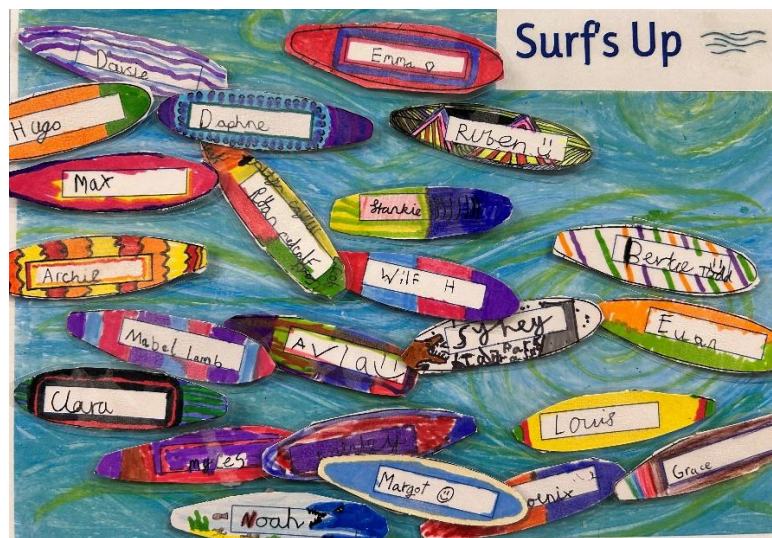 Surf's Up
Daisie
Emma
Hugo
Daphne
Ruben
Max
Archie
Wilf H
Bertie
Mabel Lamb
Ayla
Sydney
Euan
Clara
Louis
Myles
Margot
Grace
Noah